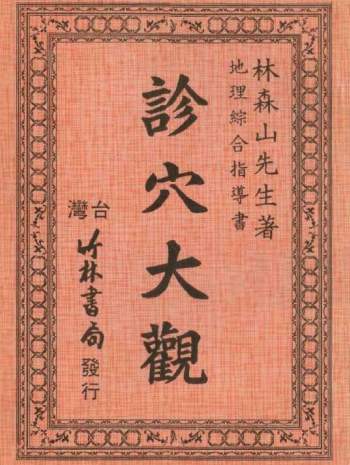 林森山先生著
地理綜合指導書
診穴大觀
台灣
竹林書局
發行